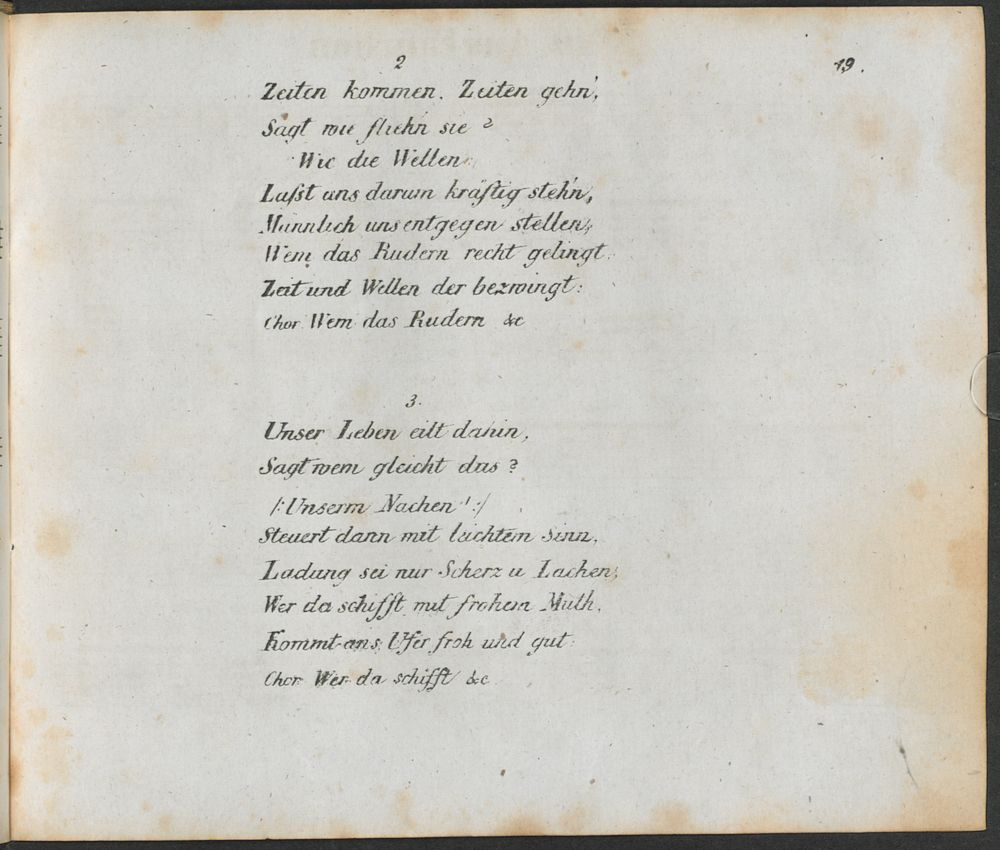 2
19.
Zeiten kommen. Zeiten gehn',
Sagt wie fliehn sie?
Wie die Wellen:
Laßt uns darum kräftig steh'n,
Männlich uns entgegen stellen;
Wem das Rudern recht gelingt:
Zeit und Wellen der bezwingt:
Chor Wem das Rudern &c
3.
Unser Leben eilt dahin,
Sagt wem gleicht das?
/: Unserm Nachen! :/
Steuert dann mit leichtem Sinn,
Ladung sei nur Scherz u Lachen;
Wer da schifft mit frohem Muth,
Kommt ans Ufer froh und gut:
Chor Wer da schifft &c